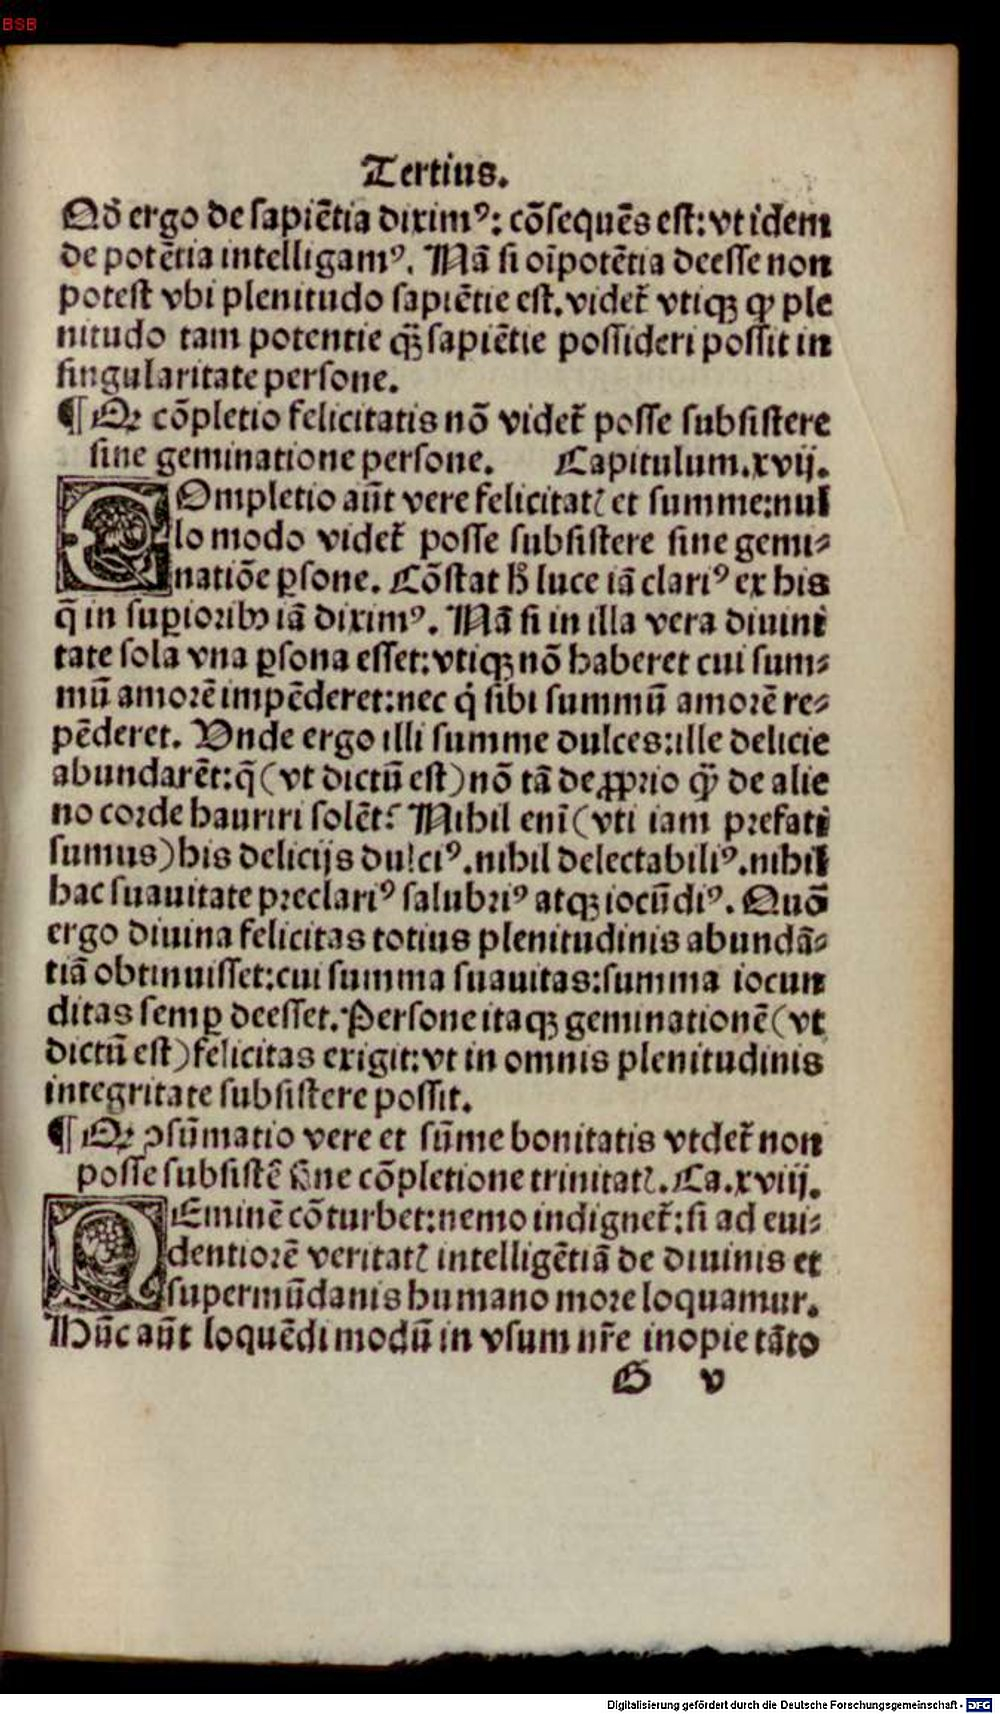 BSB
Tertius.
Qđ ergo de sapiẽtia diximꝰ: cõsequẽs est: vt idem
de potẽtia intelligamꝰ. Nã si oĩpotẽtia deesse non
potest vbi plenitudo sapiẽtie est. videt᷑ vtiqꝫ ꝙ ple
nitudo tam potentie qᷓꝫ sapiẽtie possideri possit in
singularitate persone.
¶ Qꝛ cõpletio felicitatis nõ videt᷑ posse subsistere
sine geminatione persone. Capitulum.xvij.
COmpletio aũt vere felicitatꝭ et summe: nul
lo modo videt᷑ posse subsistere sine gemi⸗
natiõe ꝑsone. Cõstat hͦ luce iã clariꝰ ex his
q̃ in suꝑioribꝰ iã diximꝰ. Nã si in illa vera diuini
tate sola vna ꝑsona esset: vtiqꝫ nõ haberet cui sum⸗
mũ amorẽ impẽderet: nec qͥ sibi summũ amorẽ re⸗
pẽderet. Vnde ergo illi summe dulces: ille delicie
abundarẽt: q̃ (vt dictũ est) nõ tã de ꝓprio qᷓꝫ de alie
no corde hauriri solẽt? Nihil enĩ (vti iam prefati
sumus) his delicijs dulciꝰ. nihil delectabiliꝰ. nihil
hac suauitate preclariꝰ salubriꝰ atqꝫ iocũdiꝰ. Quõ
ergo diuina felicitas totius plenitudinis abundã⸗
tiã obtinuisset: cui summa suauitas: summa iocun
ditas semꝑ deesset. Persone itaqꝫ geminationẽ (vt
dictũ est) felicitas exigit: vt in omnis plenitudinis
integritate subsistere possit.
¶ Qꝛ ꝯsũmatio vere et sũme bonitatis vtdet᷑ non
posse subsistẽ sine cõpletione trinitatꝭ. Ca.xviij.
NEminẽ cõturbet: nemo indignet᷑: si ad eui⸗
dentiorẽ veritatꝭ intelligẽtiã de diuinis et
supermũdanis humano more loquamur.
Hũc aũt loquẽdi modũ in vsum nr̃e inopie tãto
G v
Digitalisierung gefördert durch die Deutsche Forschungsgemeinschaft - DFG